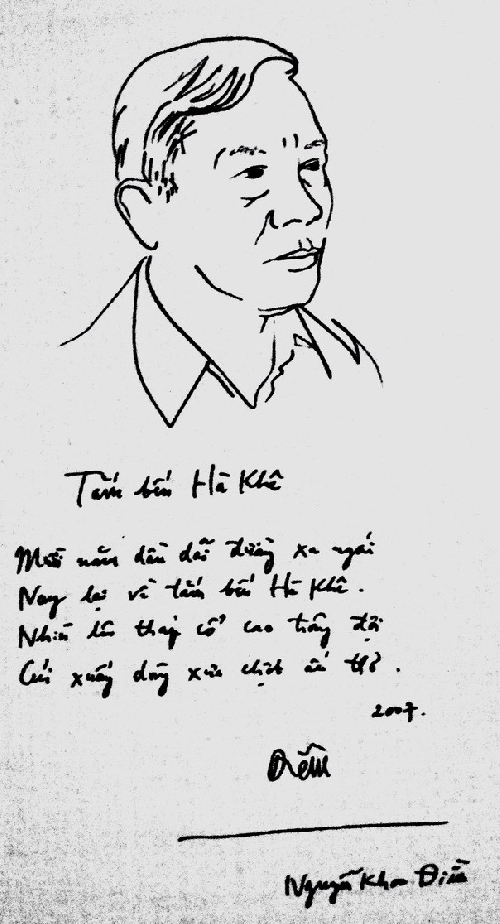 Tắm bến Hà Khê
Mười năm dầu dãi đường xa ngái
Nay lại về tắm bến Hà Khê.
Nhìn lên tháp cổ cao trông đợi
Cúi xuống dòng xưa chợt ấu thơ.
2007.
Điềm
Nguyễn Khoa Điềm